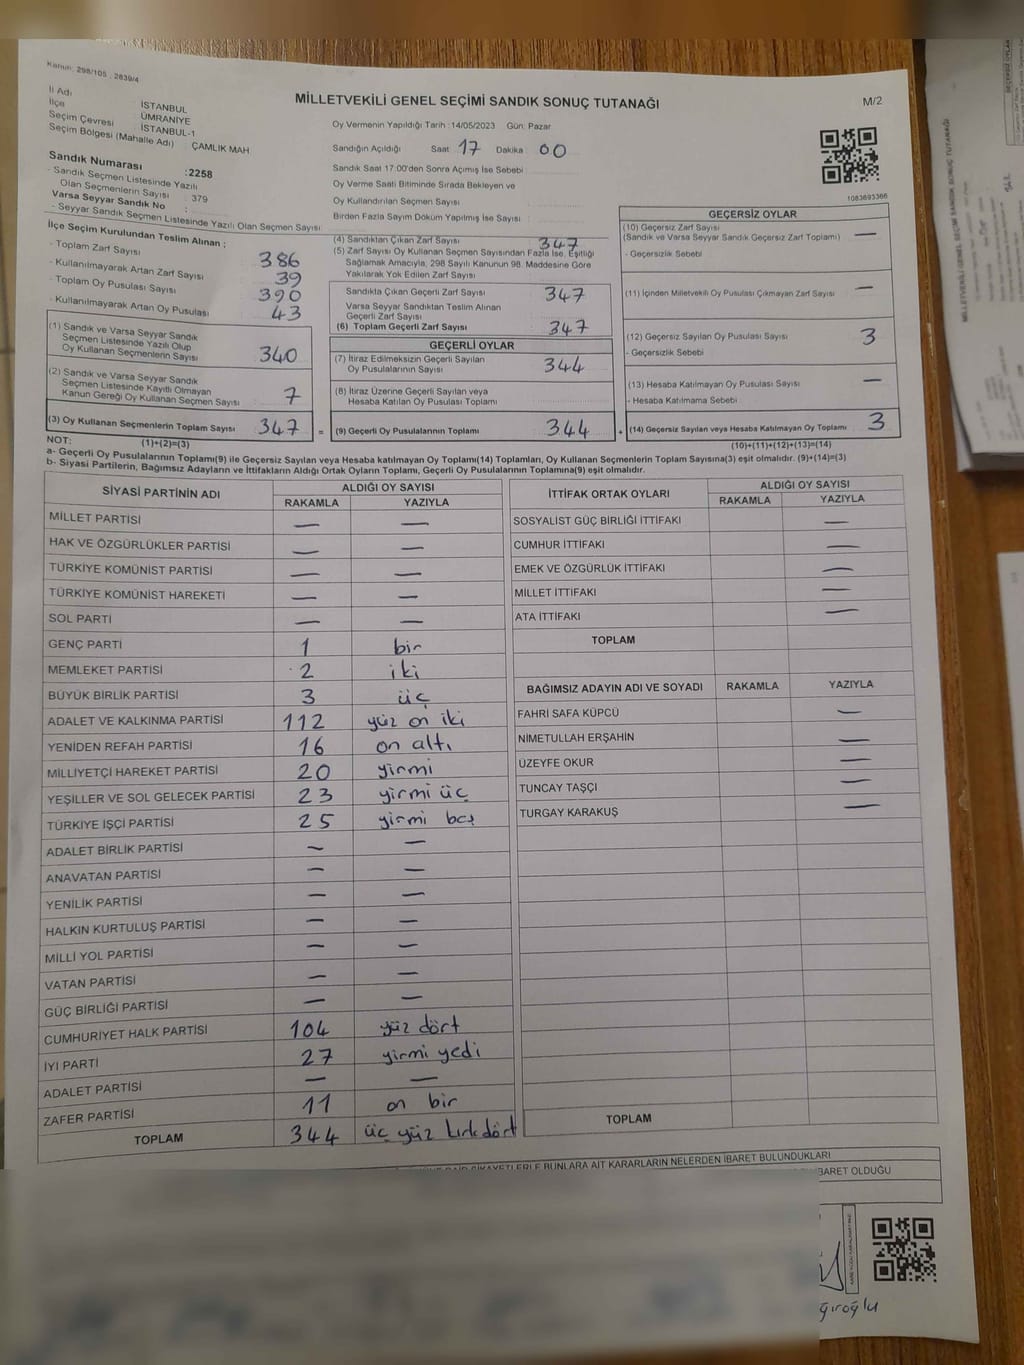 Kanun: 298/105 , 2839/4
MİLLETVEKİLİ GENEL SEÇİMİ SANDIK SONUÇ TUTANAĞI
M/2
İl Adı İSTANBUL
İlçe ÜMRANİYE
Seçim Çevresi İSTANBUL-1
Seçim Bölgesi (Mahalle Adı) : ÇAMLIK MAH
Sandık Numarası :2258
- Sandık Seçmen Listesinde Yazılı
Olan Seçmenlerin Sayısı : 379
Varsa Seyyar Sandık No :
- Seyyar Sandık Seçmen Listesinde Yazılı Olan Seçmen Sayısı
Oy Vermenin Yapıldığı Tarih :14/05/2023 Gün: Pazar
Sandığın Açıldığı Saat 17 Dakika 00
Sandık Saat 17:00'den Sonra Açımış İse Sebebi
Oy Verme Saati Bitiminde Sırada Bekleyen ve
Oy Kullandırılan Seçmen Sayısı
Birden Fazla Sayım Döküm Yapılmış İse Sayısı
1083693366
İlçe Seçim Kurulundan Teslim Alınan ;
- Toplam Zarf Sayısı 386
- Kullanılmayarak Artan Zarf Sayısı 39
- Toplam Oy Pusulası Sayısı 390
- Kullanılmayarak Artan Oy Pusulası 43
(1) Sandık ve Varsa Seyyar Sandık
Seçmen Listesinde Yazılı Olup
Oy Kullanan Seçmenlerin Sayısı 340
(2) Sandık ve Varsa Seyyar Sandık
Seçmen Listesinde Kayıtlı Olmayan
Kanun Gereği Oy Kullanan Seçmen Sayısı 7
(3) Oy Kullanan Seçmenlerin Toplam Sayısı 347 =
(4) Sandıktan Çıkan Zarf Sayısı 347
(5) Zarf Sayısı Oy Kullanan Seçmen Sayısından Fazla İse, Eşitliği
Sağlamak Amacıyla, 298 Sayılı Kanunun 98. Maddesine Göre
Yakılarak Yok Edilen Zarf Sayısı
Sandıkta Çıkan Geçerli Zarf Sayısı 347
Varsa Seyyar Sandıktan Teslim Alınan
Geçerli Zarf Sayısı
(6) Toplam Geçerli Zarf Sayısı 347
GEÇERLİ OYLAR
(7) İtiraz Edilmeksizin Geçerli Sayılan
Oy Pusulalarının Sayısı 344
(8) İtiraz Üzerine Geçerli Sayılan veya
Hesaba Katılan Oy Pusulası Toplamı
(9) Geçerli Oy Pusulalarının Toplamı 344 +
GEÇERSİZ OYLAR
(10) Geçersiz Zarf Sayısı —
(Sandık ve Varsa Seyyar Sandık Geçersiz Zarf Toplamı)
- Geçersizlik Sebebi
(11) İçinden Milletvekili Oy Pusulası Çıkmayan Zarf Sayısı —
(12) Geçersiz Sayılan Oy Pusulası Sayısı 3
- Geçersizlik Sebebi
(13) Hesaba Katılmayan Oy Pusulası Sayısı —
- Hesaba Katılmama Sebebi
(14) Geçersiz Sayılan veya Hesaba Katılmayan Oy Toplamı 3
NOT: (1)+(2)=(3) (10)+(11)+(12)+(13)=(14)
a- Geçerli Oy Pusulalarının Toplamı(9) ile Geçersiz Sayılan veya Hesaba katılmayan Oy Toplamı(14) Toplamları, Oy Kullanan Seçmenlerin Toplam Sayısına(3) eşit olmalıdır. (9)+(14)=(3)
b- Siyasi Partilerin, Bağımsız Adayların ve İttifakların Aldığı Ortak Oyların Toplamı, Geçerli Oy Pusulalarının Toplamına(9) eşit olmalıdır.
SİYASİ PARTİNİN ADI ALDIĞI OY SAYISI
RAKAMLA YAZIYLA
MİLLET PARTİSİ — —
HAK VE ÖZGÜRLÜKLER PARTİSİ — —
TÜRKİYE KOMÜNİST PARTİSİ — —
TÜRKİYE KOMÜNİST HAREKETİ — —
SOL PARTİ — —
GENÇ PARTİ 1 bir
MEMLEKET PARTİSİ 2 iki
BÜYÜK BİRLİK PARTİSİ 3 üç
ADALET VE KALKINMA PARTİSİ 112 yüz on iki
YENİDEN REFAH PARTİSİ 16 on altı
MİLLİYETÇİ HAREKET PARTİSİ 20 yirmi
YEŞİLLER VE SOL GELECEK PARTİSİ 23 yirmi üç
TÜRKİYE İŞÇİ PARTİSİ 25 yirmi beş
ADALET BİRLİK PARTİSİ — —
ANAVATAN PARTİSİ — —
YENİLİK PARTİSİ — —
HALKIN KURTULUŞ PARTİSİ — —
MİLLİ YOL PARTİSİ — —
VATAN PARTİSİ — —
GÜÇ BİRLİĞİ PARTİSİ — —
CUMHURİYET HALK PARTİSİ 104 yüz dört
İYİ PARTİ 27 yirmi yedi
ADALET PARTİSİ — —
ZAFER PARTİSİ 11 on bir
TOPLAM 344 üç yüz kırk dört
İTTİFAK ORTAK OYLARI ALDIĞI OY SAYISI
RAKAMLA YAZIYLA
SOSYALİST GÜÇ BİRLİĞİ İTTİFAKI —
CUMHUR İTTİFAKI —
EMEK VE ÖZGÜRLÜK İTTİFAKI —
MİLLET İTTİFAKI —
ATA İTTİFAKI —
TOPLAM
BAĞIMSIZ ADAYIN ADI VE SOYADI RAKAMLA YAZIYLA
FAHRİ SAFA KÜPCÜ —
NİMETULLAH ERŞAHİN —
ÜZEYFE OKUR —
TUNCAY TAŞÇI —
TURGAY KARAKUŞ —
TOPLAM
BUNLARA AİT KARARLARIN NELERDEN İBARET BULUNDUKLARI
İBARET OLDUĞU
ğıroğlu